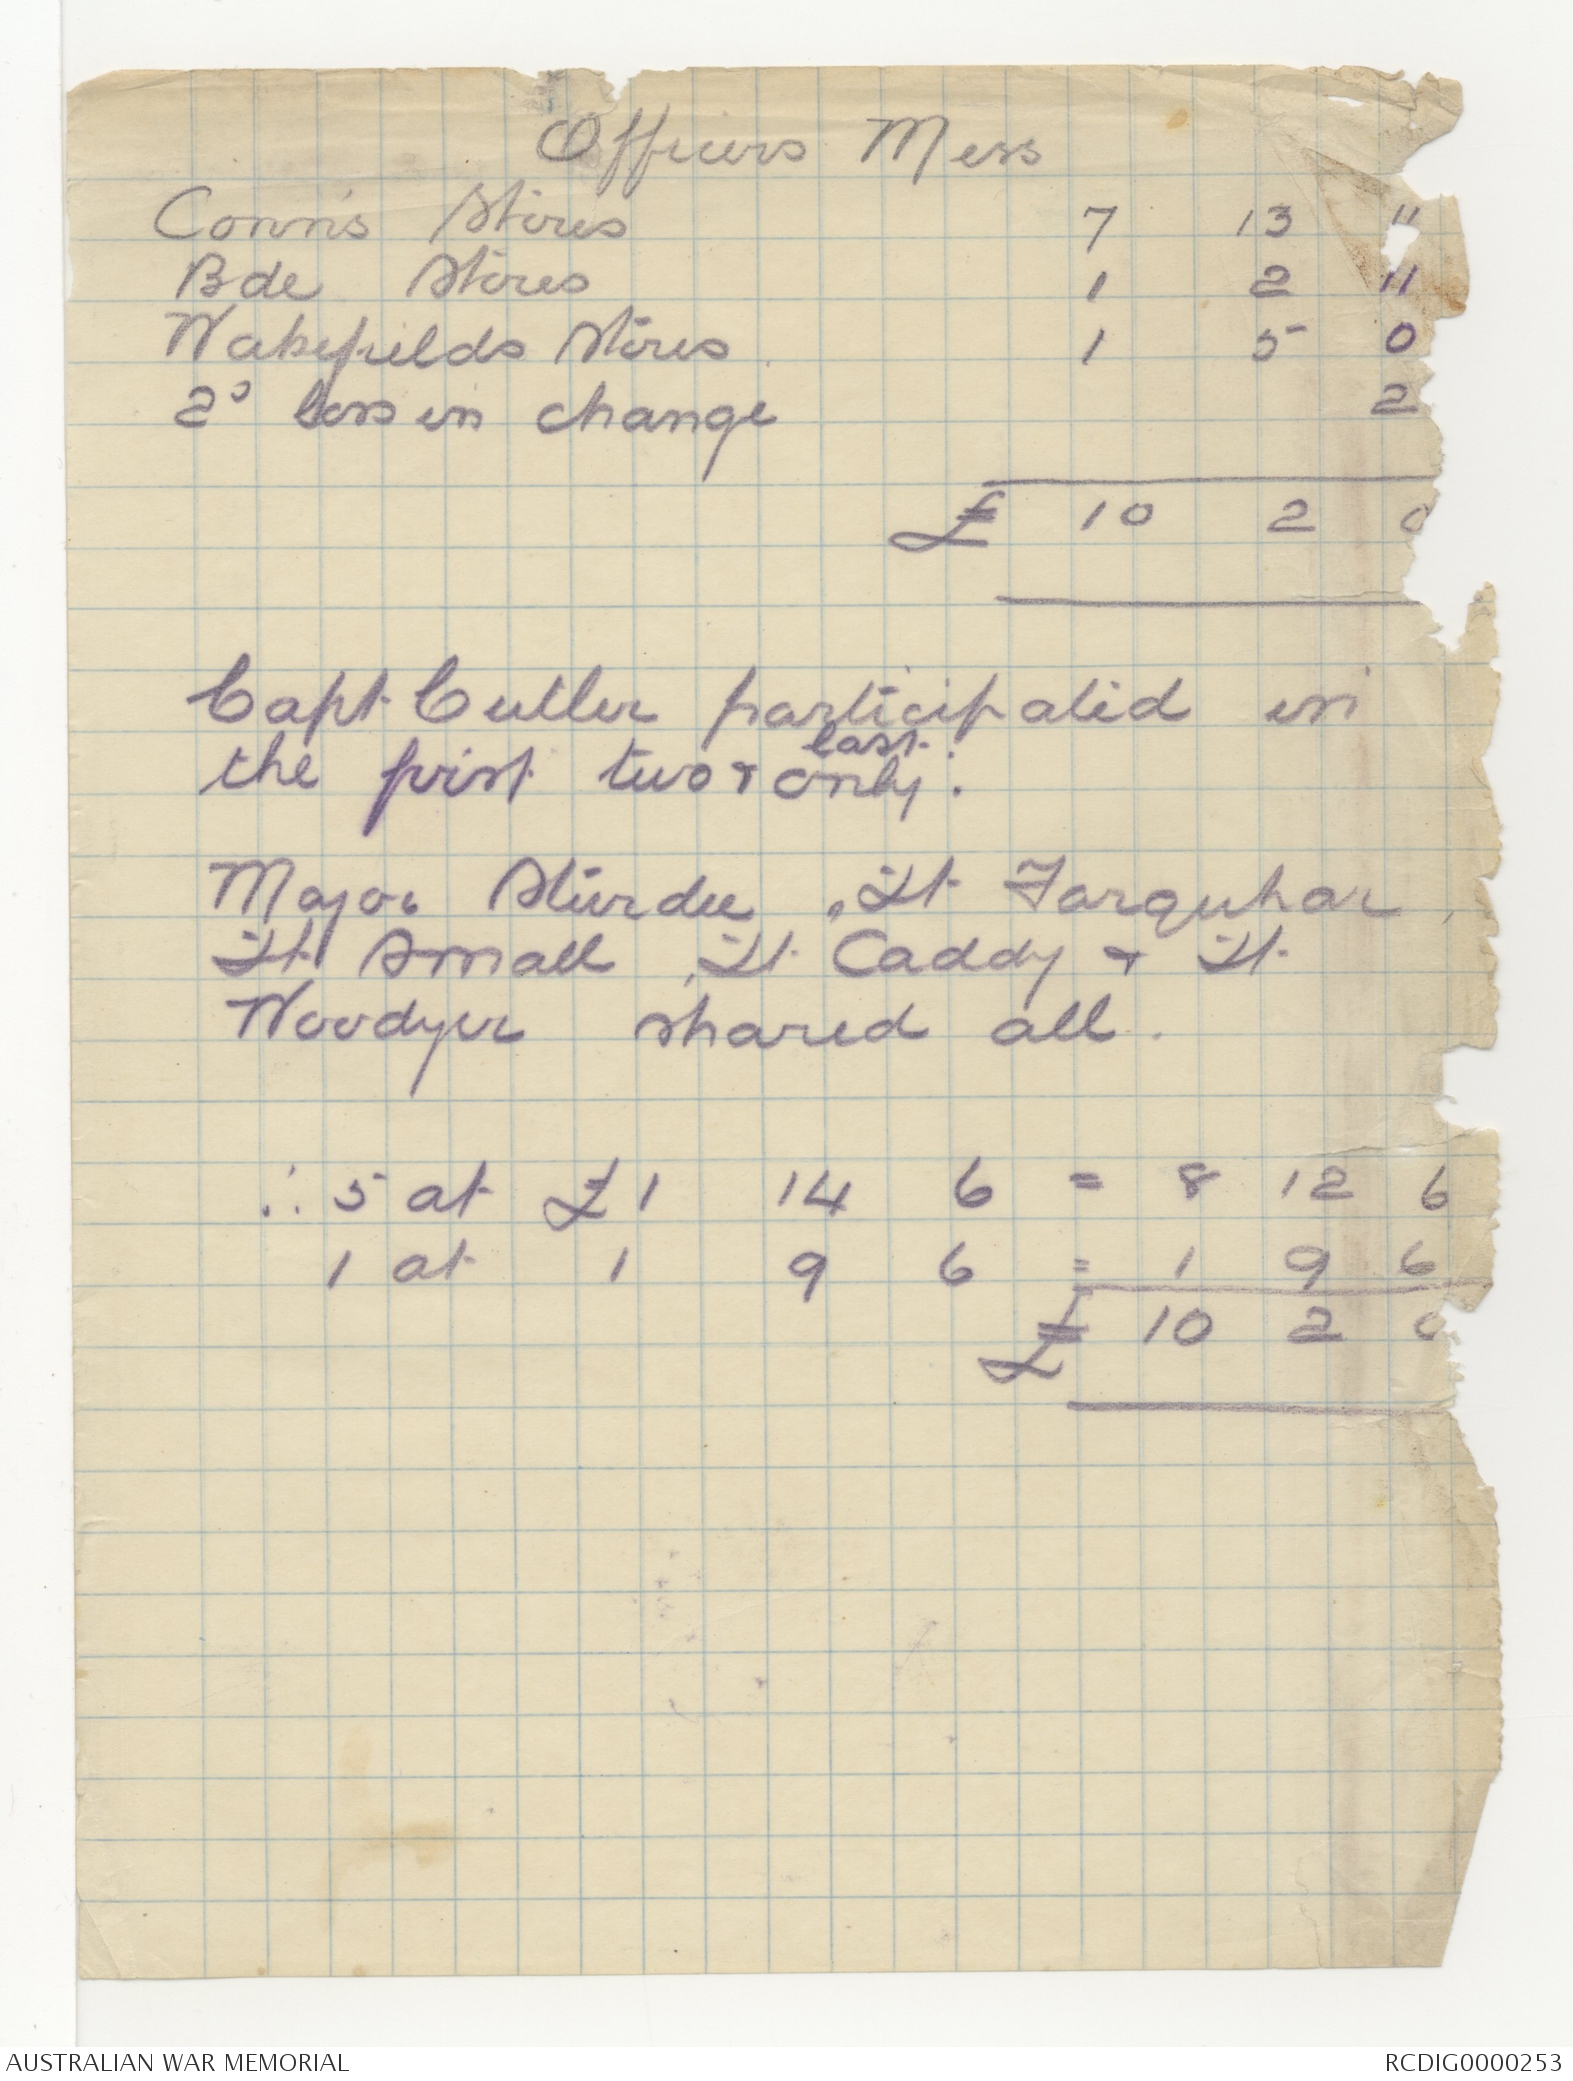 Officers Mess
Conn's Stores 7 13 11
Bde Stores 1 2 11
Wakefields Stores 1 5 0
2d loss in change 2
£ 10 2 0
Capt Cutler participated in
last
the first two & only.
Major Sturdee, Lt Farquhar,
Lt Small, Lt Caddy & Lt
Woodyer shared all.
∴ 5 at £1 14 6 = 8 12 6
1 at 1 9 6 = 1 9 6
£ 10 2 0
AUSTRALIAN WAR MEMORIAL
RCDIG0000253